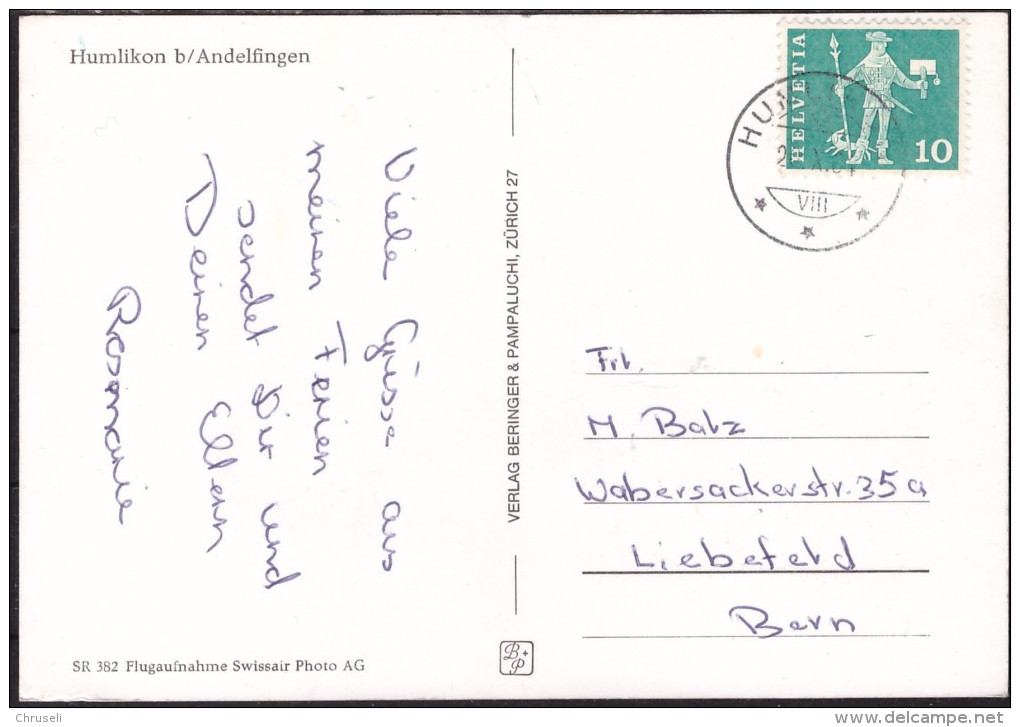 Humlikon b/Andelfingen
Viele Grüsse aus
meinen Ferien
sendet Dir und
Deinen Eltern
Rosmarie
SR 382 Flugaufnahme Swissair Photo AG
VERLAG BERINGER & PAMPALUCHI, ZÜRICH 27
B+P
HELVETIA
10
VIII
Frl.
M. Balz
Wabersackerstr. 35a
Liebefeld
Bern
© Chruseli
delcampe.net